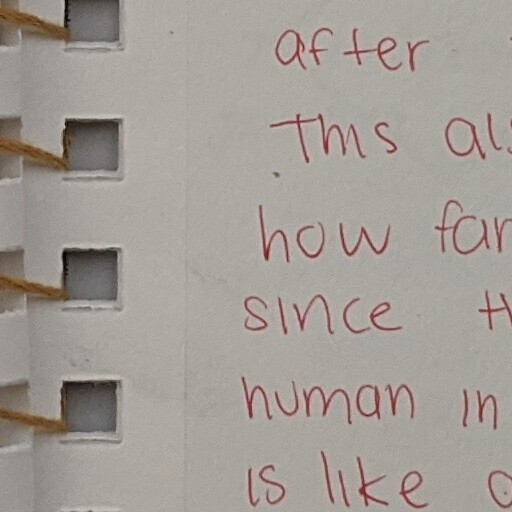 after
This als
how far
since th
human in
is like a